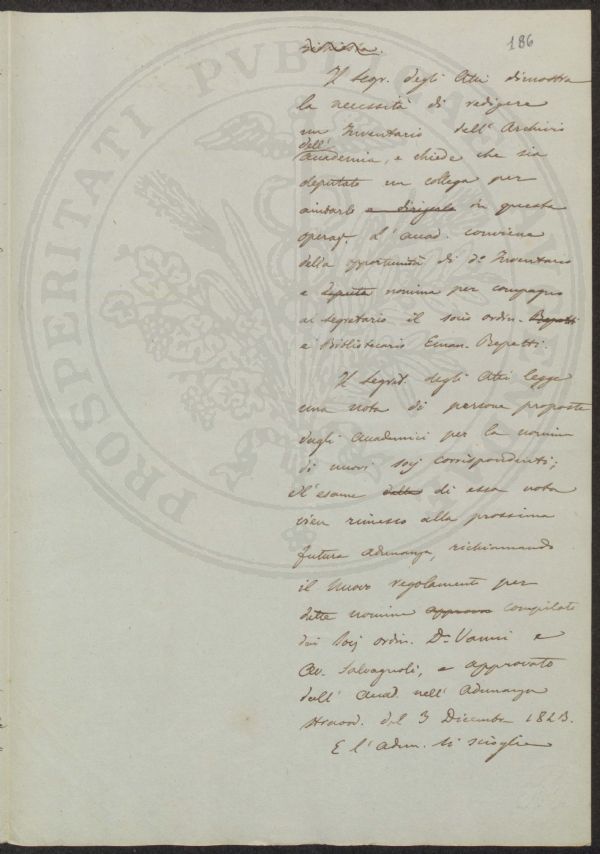 186
Il Segr. degli Atti dimostra
la necessità di redigere
un Inventario dell' Archivio
dell'
Accademia, e chiede che sia
deputato un collega per
aiutarlo e dirigerlo in questa
operaz. L' Accad. conviene
della opportunità di do Inventario
e deputa nomina per compagno
al segretario il socio ordin. Repetti
e Bibliotecario Eman. Repetti.
Il Segret. degli Atti legge
una nota di persone proposte
dagli Accademici per la nomina
di nuovi socj corrispondenti;
e l'esame della di essa nota
vien rimesso alla prossima
futura adunanza, richiamando
il Nuovo regolamento per
dette nomine approvo compilato
dai socj ordin. Dr. Vanni e
Av. Salvagnoli, e approvato
dall' Accad. nell' Adunanza
straord. del 3 Dicembre 1823.
E l' Adun. si scioglie
PROSPERITATI PVBLICAE AVGENDAE